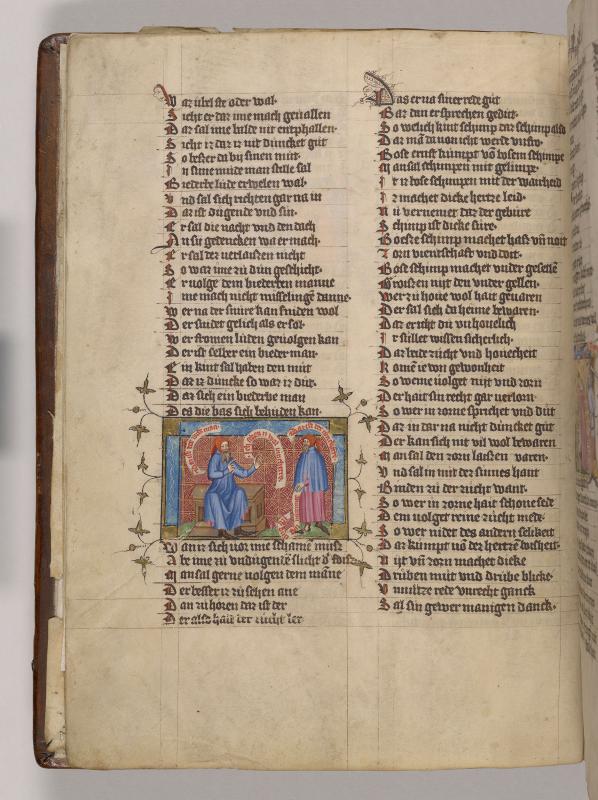 W az ubel ste oder wal·
S icht er daz ime mach geuallen
D az sal ime bilde nit entphallen·
S icht iz daz iz nit duncket gut
S o bester da by sinen mut·
I n sime mude man stille sal
B iederbe lude erwelen wal·
V nd sal sich richten gar na in
D az ist dugende vnd sin·
E r sal die nacht vnd den dach
A n sii gedencken wa er mach·
E r sal dez verlaissen nicht
S o waz ime zu dun geschicht·
E r volge dem biederben manne
I me mach nicht misselingē danne·
W er na der snure kan sniden wol
D er snidet gelich als er sol·
W er fromen luden geuolgen kan
D er ist selber ein bieder man·
E in kint sal haben den mut
D az iz duncke so waz iz dut·
D az sich ein biederbe man
D es die bas sich behuden kan·
W an iz sich vor ime schamē muiz
A be ime zu vndugentē slicht d'
M an sal gerne volgen dem māne
D er besser iz zu sehen ane
D an zu horen daz ist der
D er also hait der zucht ler
D as er na siner rede gut
B az dun er sprechen gedut·
S o welich kint schimp daz schimp also
D az mā da von icht werde vnfro·
B ose ernst kumpt vō bosem schimpe
M an sal schimpen mit gelimpe·
I r iz bose schimpen mit der warheid
I z machet dicke hertze leid·
N u vernemet daz der gebure
S chimp ist dicke sure·
B oese schimp machet hasz vn̄ noit
Z orn vientschaft vnd doit·
B ose schimp machet vnder gesellē
G roissen nijt den vnder gellen·
W er zu houe wol hait geuaren
D er sal sich da heime bewaren·
D az er icht du vnhouelich
I z stillet wissen sicherlich·
D az beide zucht vnd houescheit
K omē ie von gewonheit
S o weme uolget nijt vnd zorn
D er hait sin recht gar uerlorn·
S o wer in zorne sprichet vnd dut
D az in dar na nicht duncket gut
D er kan sich nit vil wol bewaren
M an sal den zorn laissen varen·
V nd sal in mit der sinnes hant
B inden zu der zucht want·
S o wer in zorne hait schone sede
D em uolget reine zucht mede·
S o wer nidet des andern selikeit
D az kumpt vō des hertzē bosheit·
N ijt vn̄ zorn machet dicke
D ruben mut vnd drube blicke·
V nnutze rede vnrecht ganck
S al sin gewer manigen danck·